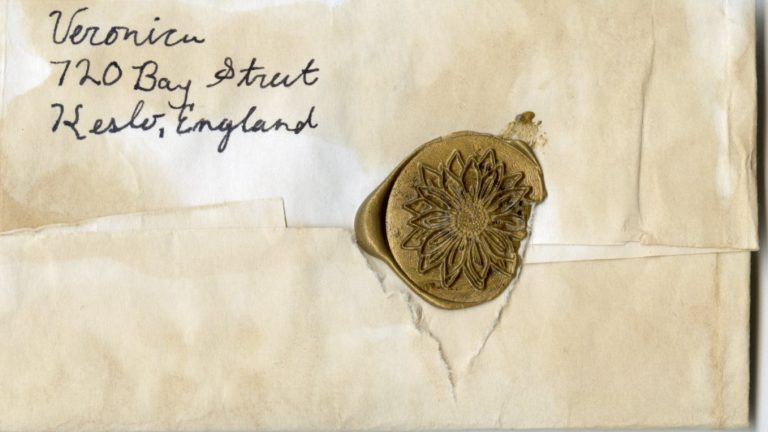 Veronica
720 Bay Street
Keslo, England